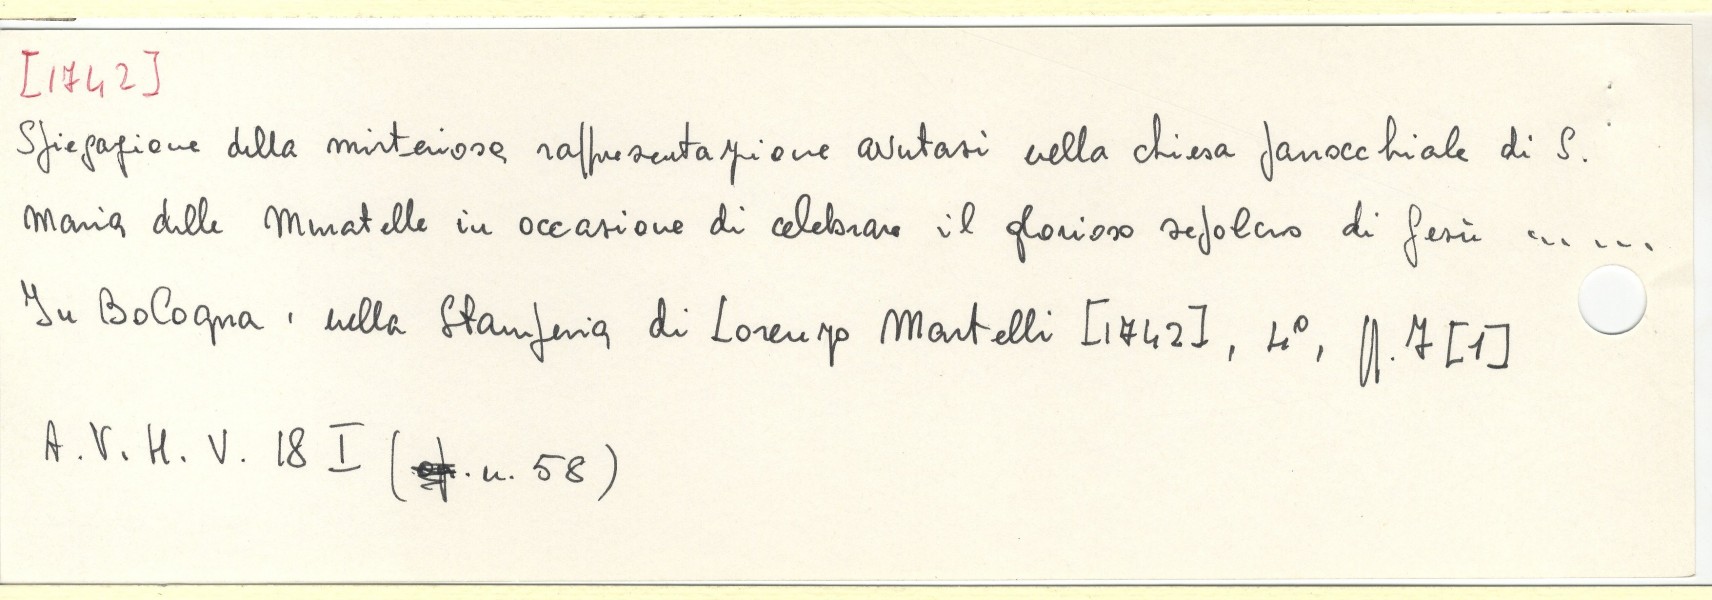 [1742]
Spiegazione della misteriosa rappresentazione avutasi nella chiesa parocchiale di S.
Maria delle Muratelle in occasione di celebrare il glorioso sepolcro di Gesù ... ...
In Bologna, nella Stamperia di Lorenzo Martelli [1742], 4°, pp. 7 [1]
A. V. H. V. 18 I ( n. 58)